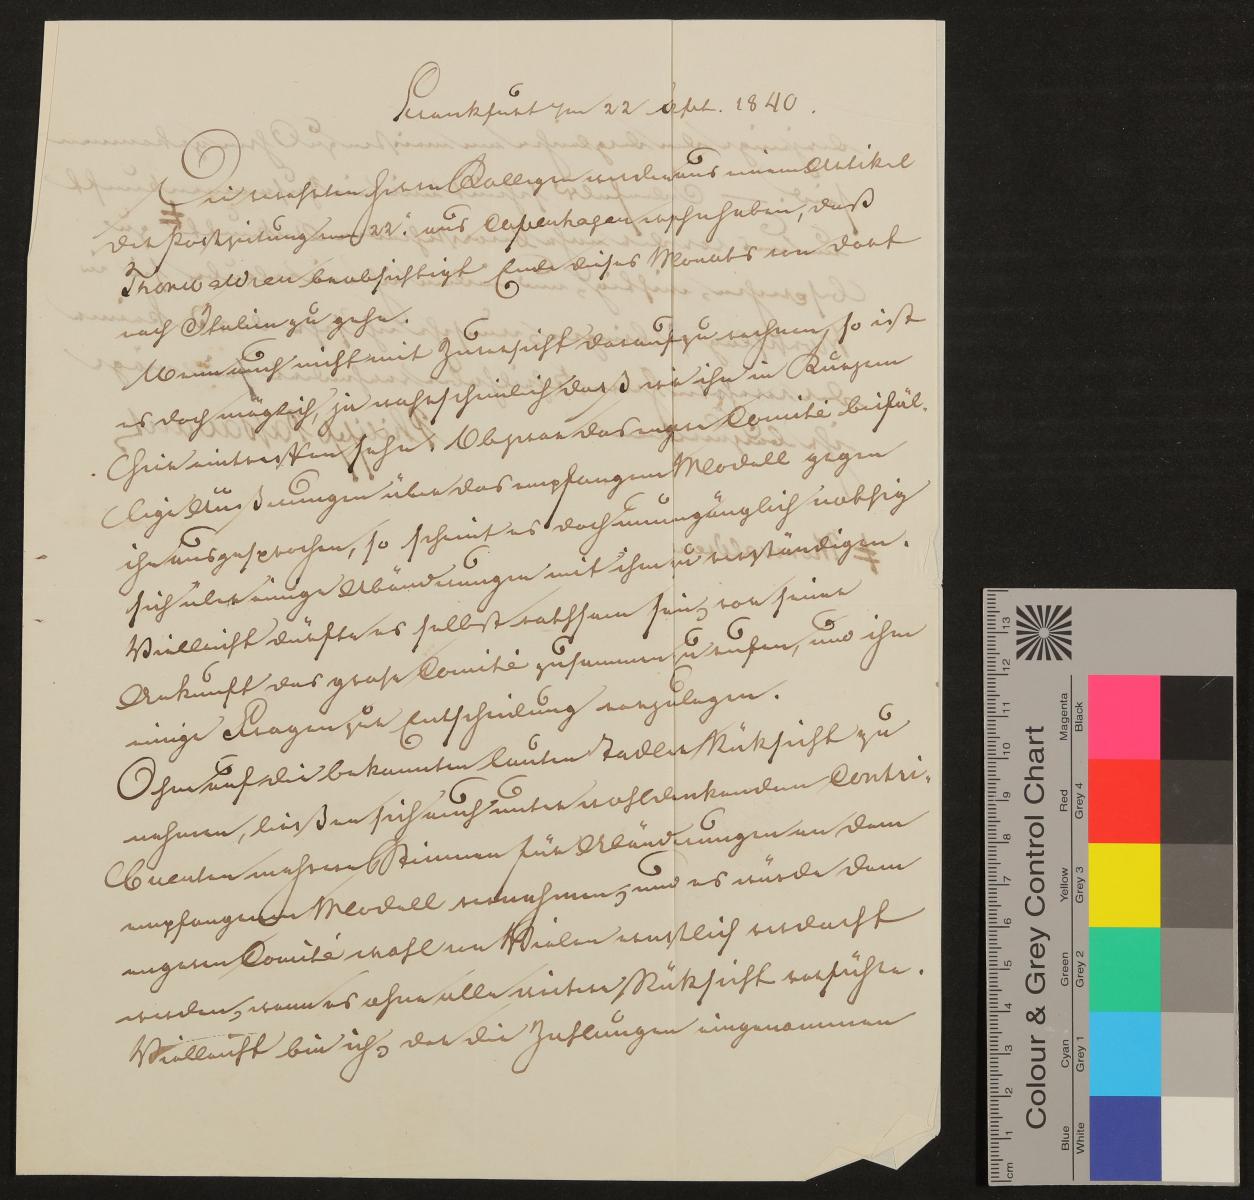 Frankfurt den 22 Sept. 1840.
Die verehrten Herrn Collegen werden aus einem Artikel
der Postzeitung vom 22. aus Copenhagen ersehn haben, daß
Thorwaldsen beabsichtigt Ende dieses Monats von dort
nach Italien zu gehn.
Wenn auch nicht mit Zuversicht darauf zu rechnen, so ist
es doch möglich, ja wahrscheinlich daß wir ihn in Kurzem
hier eintreffen sehn. Obzwar das engre Comité beifäl-
lige Äußerungen über das empfangene Modell gegen
ihn ausgesprochen, so scheint es doch unumgänglich nothig
sich über einige Abänderungen mit ihm zu verständigen.
Vielleicht dürfte es selbst rathsam sein, vor seiner
Ankunft das große Comité zusammen zu rufen, und ihm
einige Fragen zur Entscheidung vorzulegen.
Ohne auf die bekannten lauten Tadler Rüksicht zu
nehmen, ließen sich auch unter wohldenkenden Contri-
buenten mehrere Stimmen für Abänderungen an dem
empfangenen Modell vernehmen, und es würde dem
engeren Comité wohl von Vielen ernstlich verdacht
werden, wenn es ohne alle weitere Rüksicht vorführe.
Vielleicht bin ich, der die Zahlungen eingenommen
Colour & Grey Control Chart
Blue Cyan Green Yellow Red Magenta
White Grey 1 Grey 2 Grey 3 Grey 4 Black
cm 1 2 3 4 5 6 7 8 9 10 11 12 13